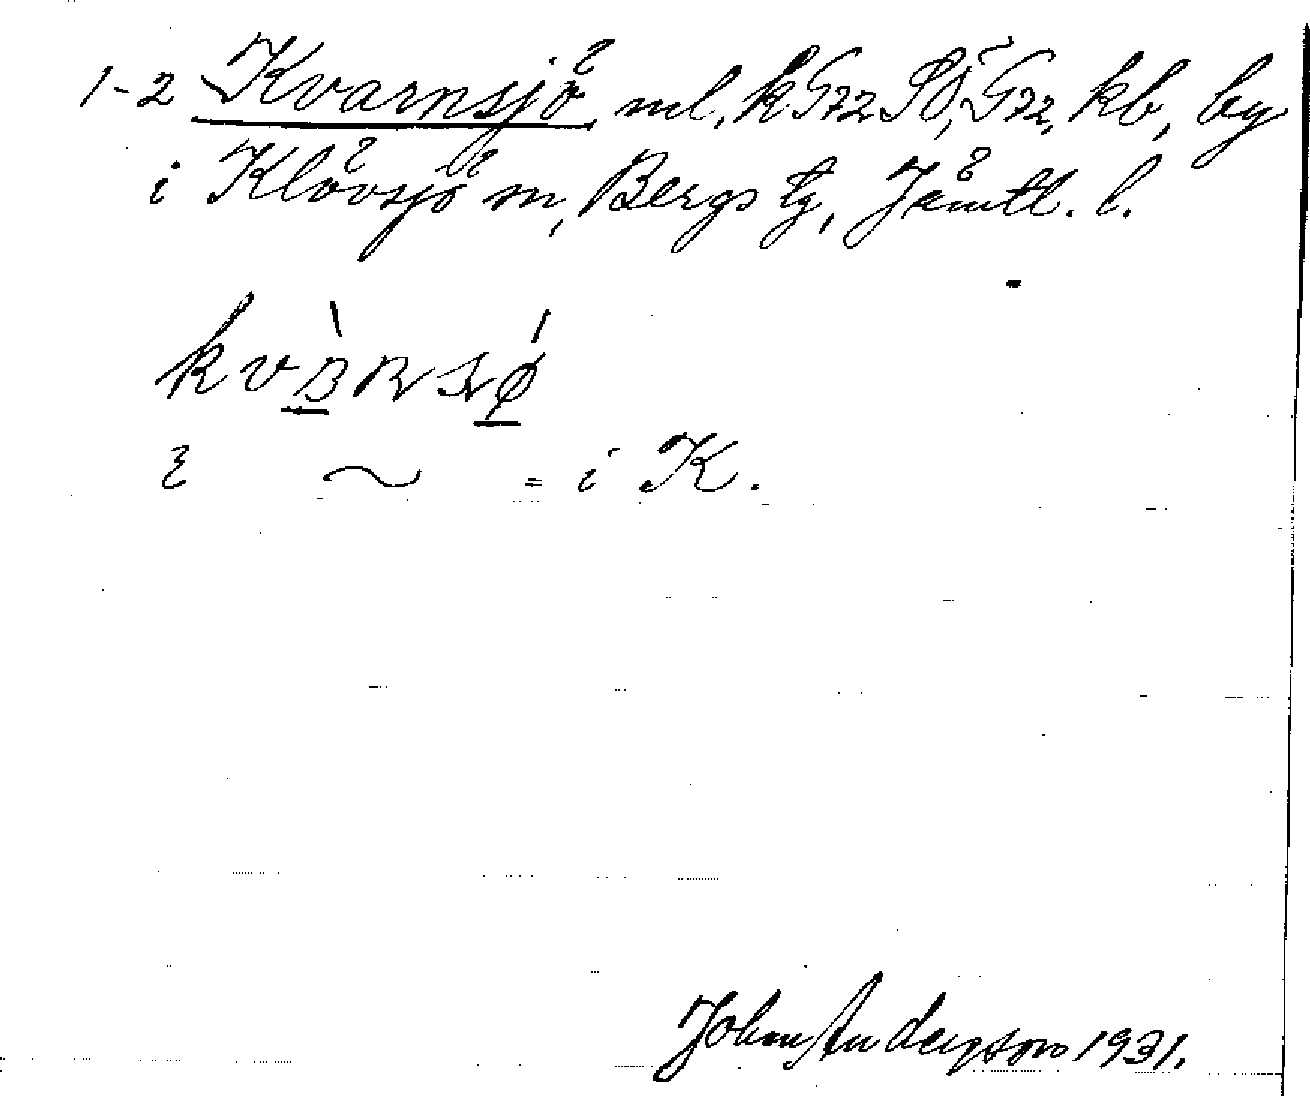 1-2 Kvarnsjö, ml, kG72 SO, G72, kb, by
i Klövsjö sn, Bergs tg, Jämtl. l.
i ~ = i K.
John Anderson 1931.